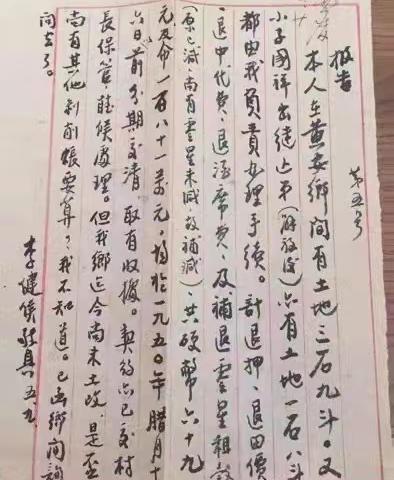 第五号
报告
本人在黄安乡间有土地三石九斗。又
小子国祥出继亡弟(解放后)亦有土地一石八斗
都由我负责办理手续。计退押、退田价
、退中代费、退酒席费、及补退零星租谷
(原已减,尚有零星未减,故补减)共硬币六十九
元及人币一百八十一万元,均於一九五〇年腊月十
六日前分期交清 取有收据。契约亦已交村
长保管,听候处理。但我乡迄今尚未土改,是否
尚有其他剥削账要算?我不知道。已函乡间询
问去了。
李健侯敬具 五、九